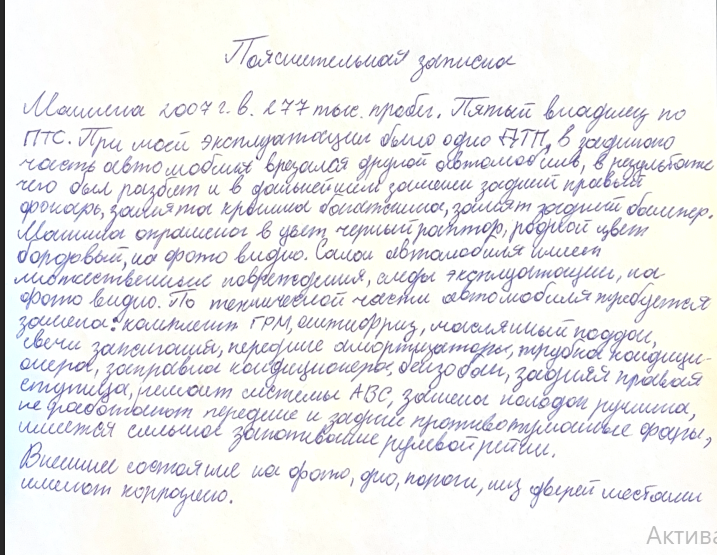 Пояснительная записка
Машина 2007 г. в. 277 тыс. пробег. Пятый владелец по
ПТС. При моей эксплуатации было одно ДТП, в заднюю
часть автомобиля врезался другой автомобиль, в результате
чего был разбит и в дальнейшем заменен задний правый
фонарь, замята крышка багажника, замят задний бампер.
Машина окрашена в цвет черный раптор, родной цвет
бордовый, на фото видно. Салон автомобиля имеет
множественные повреждения, следы эксплуатации, на
фото видно. По технической части автомобиля требуется
замена: комплект ГРМ, антифриз, маслянный поддон,
свечи зажигания, передние амортизаторы, трубка кондици-
онера, заправка кондиционера, бензобак, задняя правая
ступица, ремонт системы АВС, замена колодок ручника,
не работают передние и задние противотуманные фары,
имеется сильное запотевание рулевой рейки.
Внешнее состояние на фото, дно, пороги, низ дверей местами
имеют коррозию.
Актива